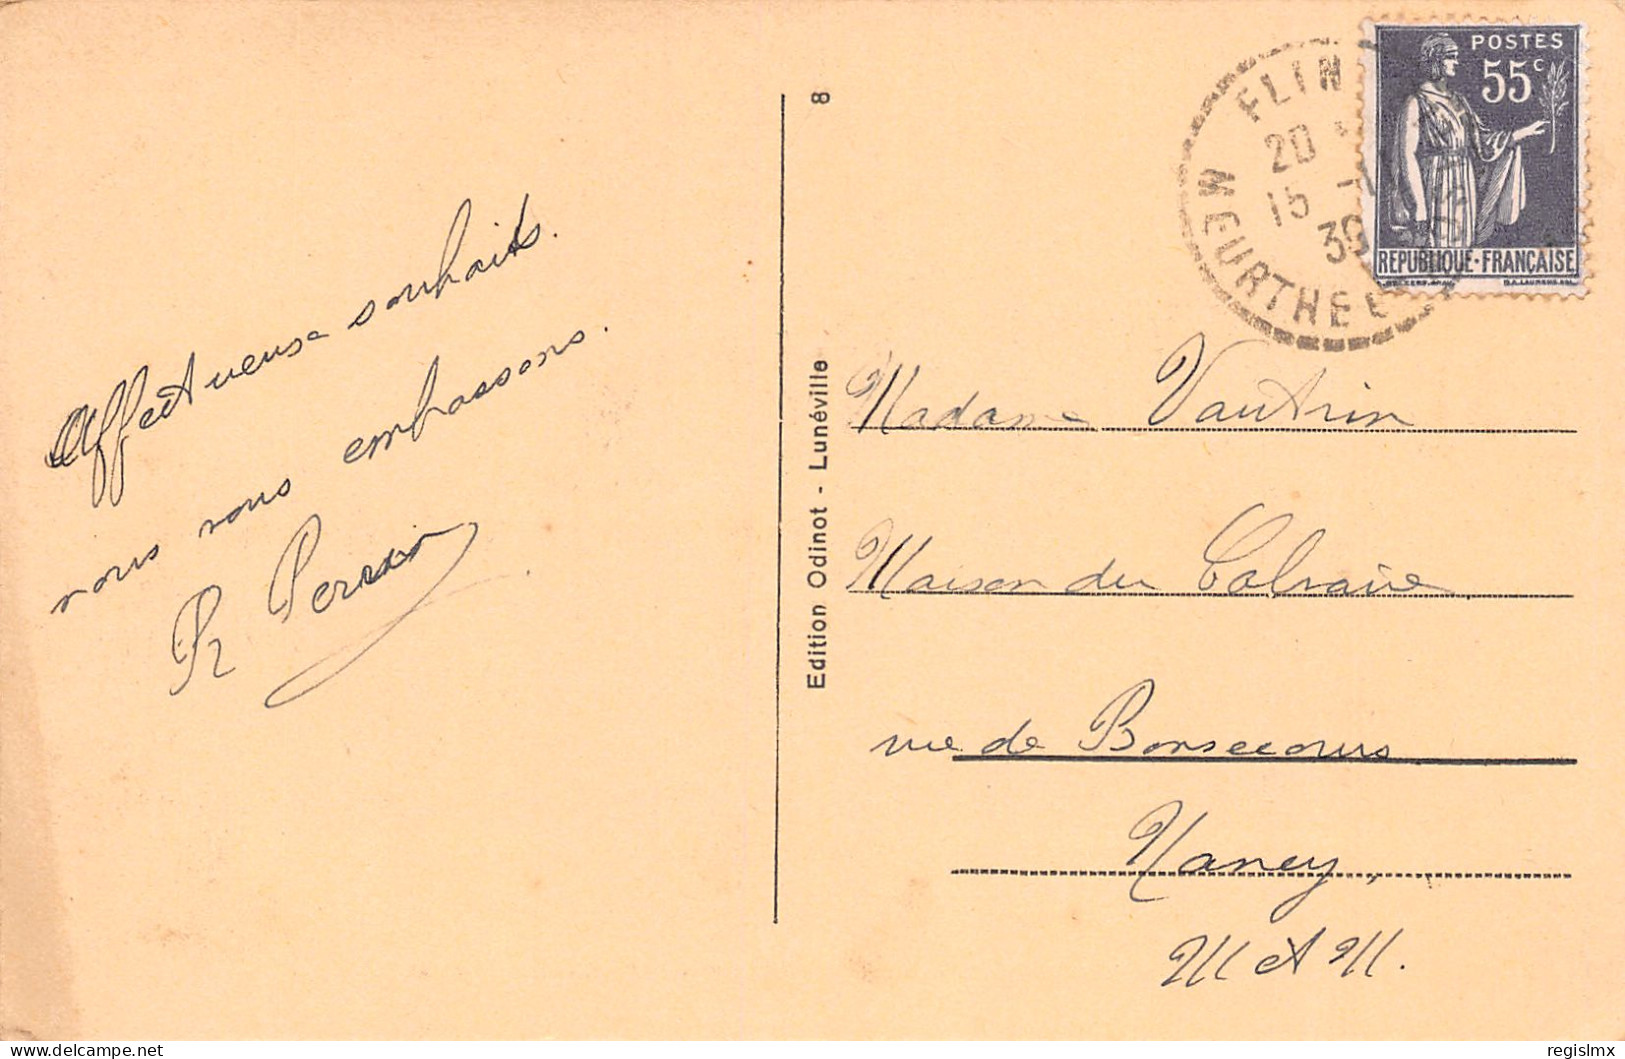 Affectueux souhaits.
nous vous embrassons.
R Perrin
Edition Odinot - Lunéville
8
FLIN
20
15
39
MEURTHE E
POSTES
55c
REPUBLIQUE·FRANÇAISE
Madame Vautrin
Maison du Calvaire
rue de Bonsecours
Nancy,
M et M.
delcampe.net
regislmx